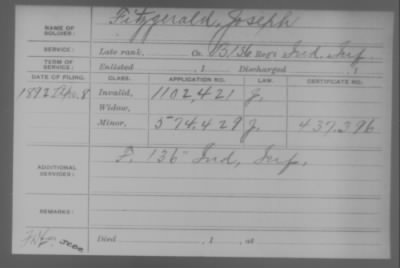 NAME OF SOLDIER: Fitzgerald, Joseph
SERVICE: Late rank, Co. B, 136 Reg't Ind. Inf.
TERM OF SERVICE: Enlisted , 1 Discharged , 1
DATE OF FILING. CLASS. APPLICATION NO. LAW. CERTIFICATE NO.
1892 Apr. 8 Invalid, 1102,421 J.
Widow,
Minor, 574,429 J. 437,396
ADDITIONAL SERVICES: F. 136" Ind, Inf,
REMARKS:
Died , 1 , at